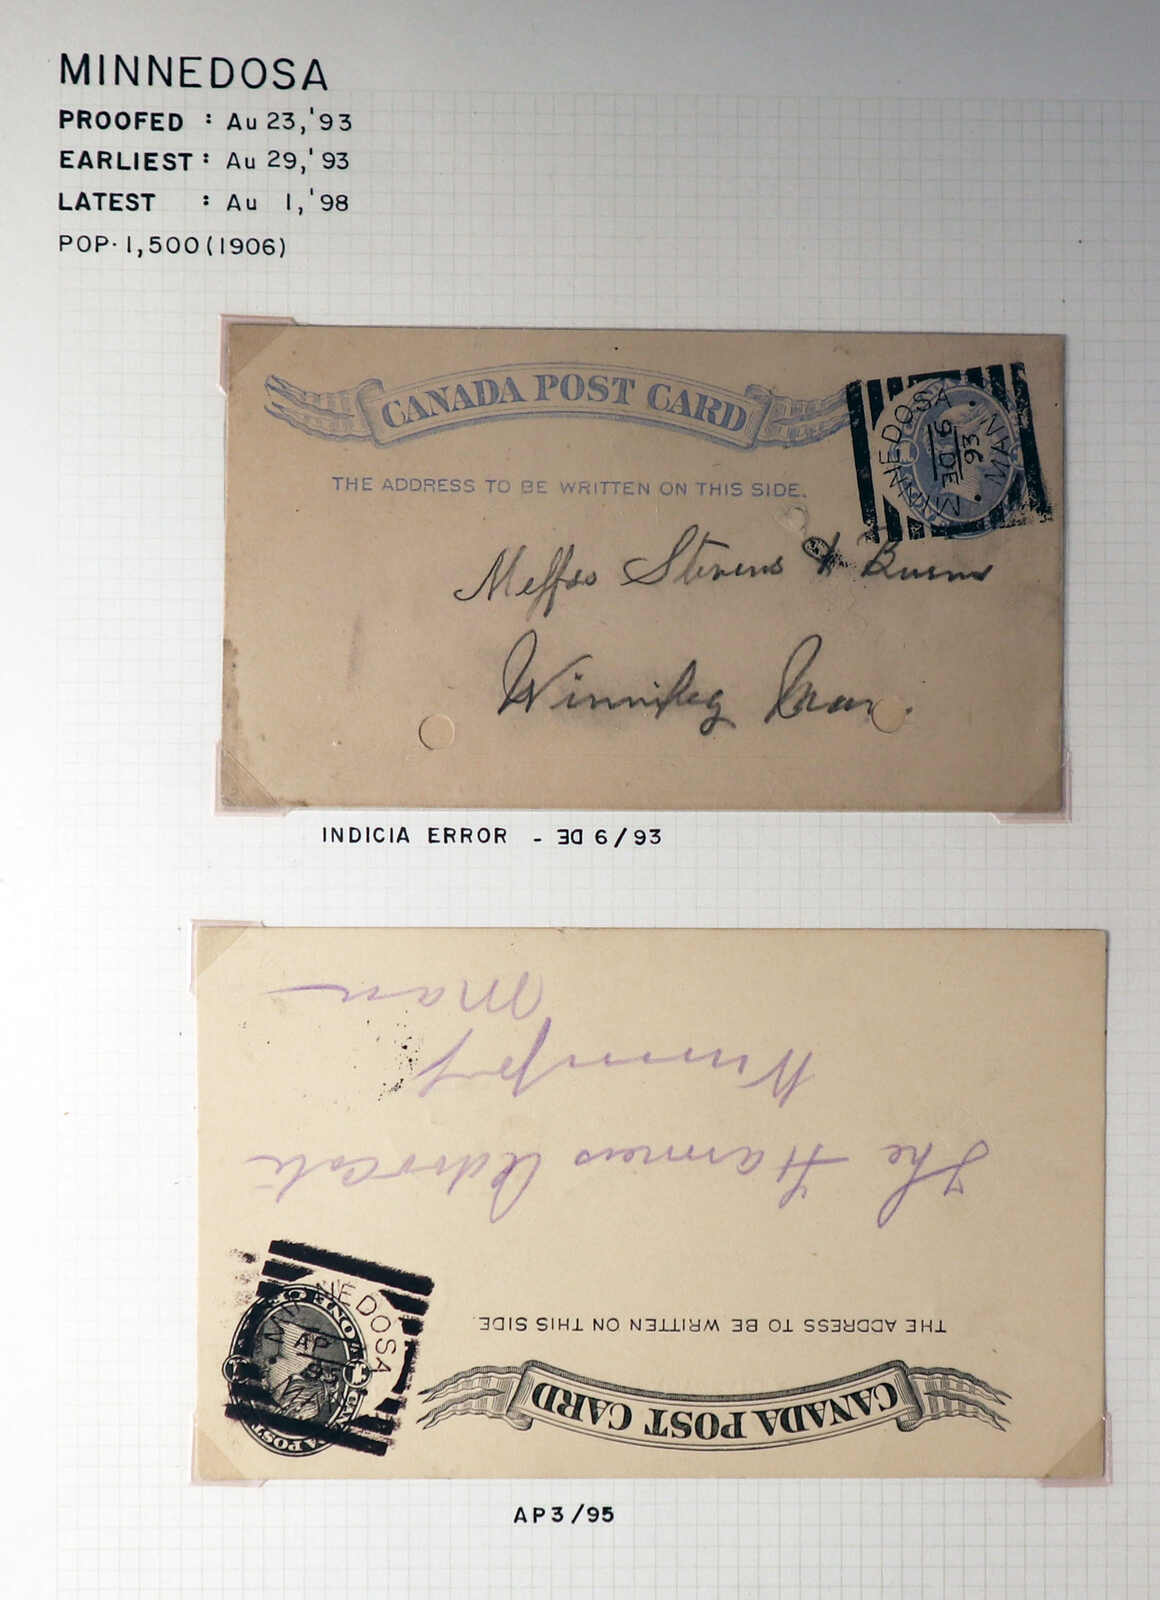 MINNEDOSA
PROOFED : Au 23,'93
EARLIEST : Au 29,'93
LATEST : Au 1,'98
POP. 1,500 (1906)
CANADA POST CARD
THE ADDRESS TO BE WRITTEN ON THIS SIDE.
MINNEDOSA
DE 6
93
MAN
Messrs Stevens & Burns
Winnipeg Man.
INDICIA ERROR - ƎD 6/93
CANADA POST CARD
THE ADDRESS TO BE WRITTEN ON THIS SIDE.
MINNEDOSA
AP
95
The Farmers Advocate
Winnipeg
Man
AP 3/95